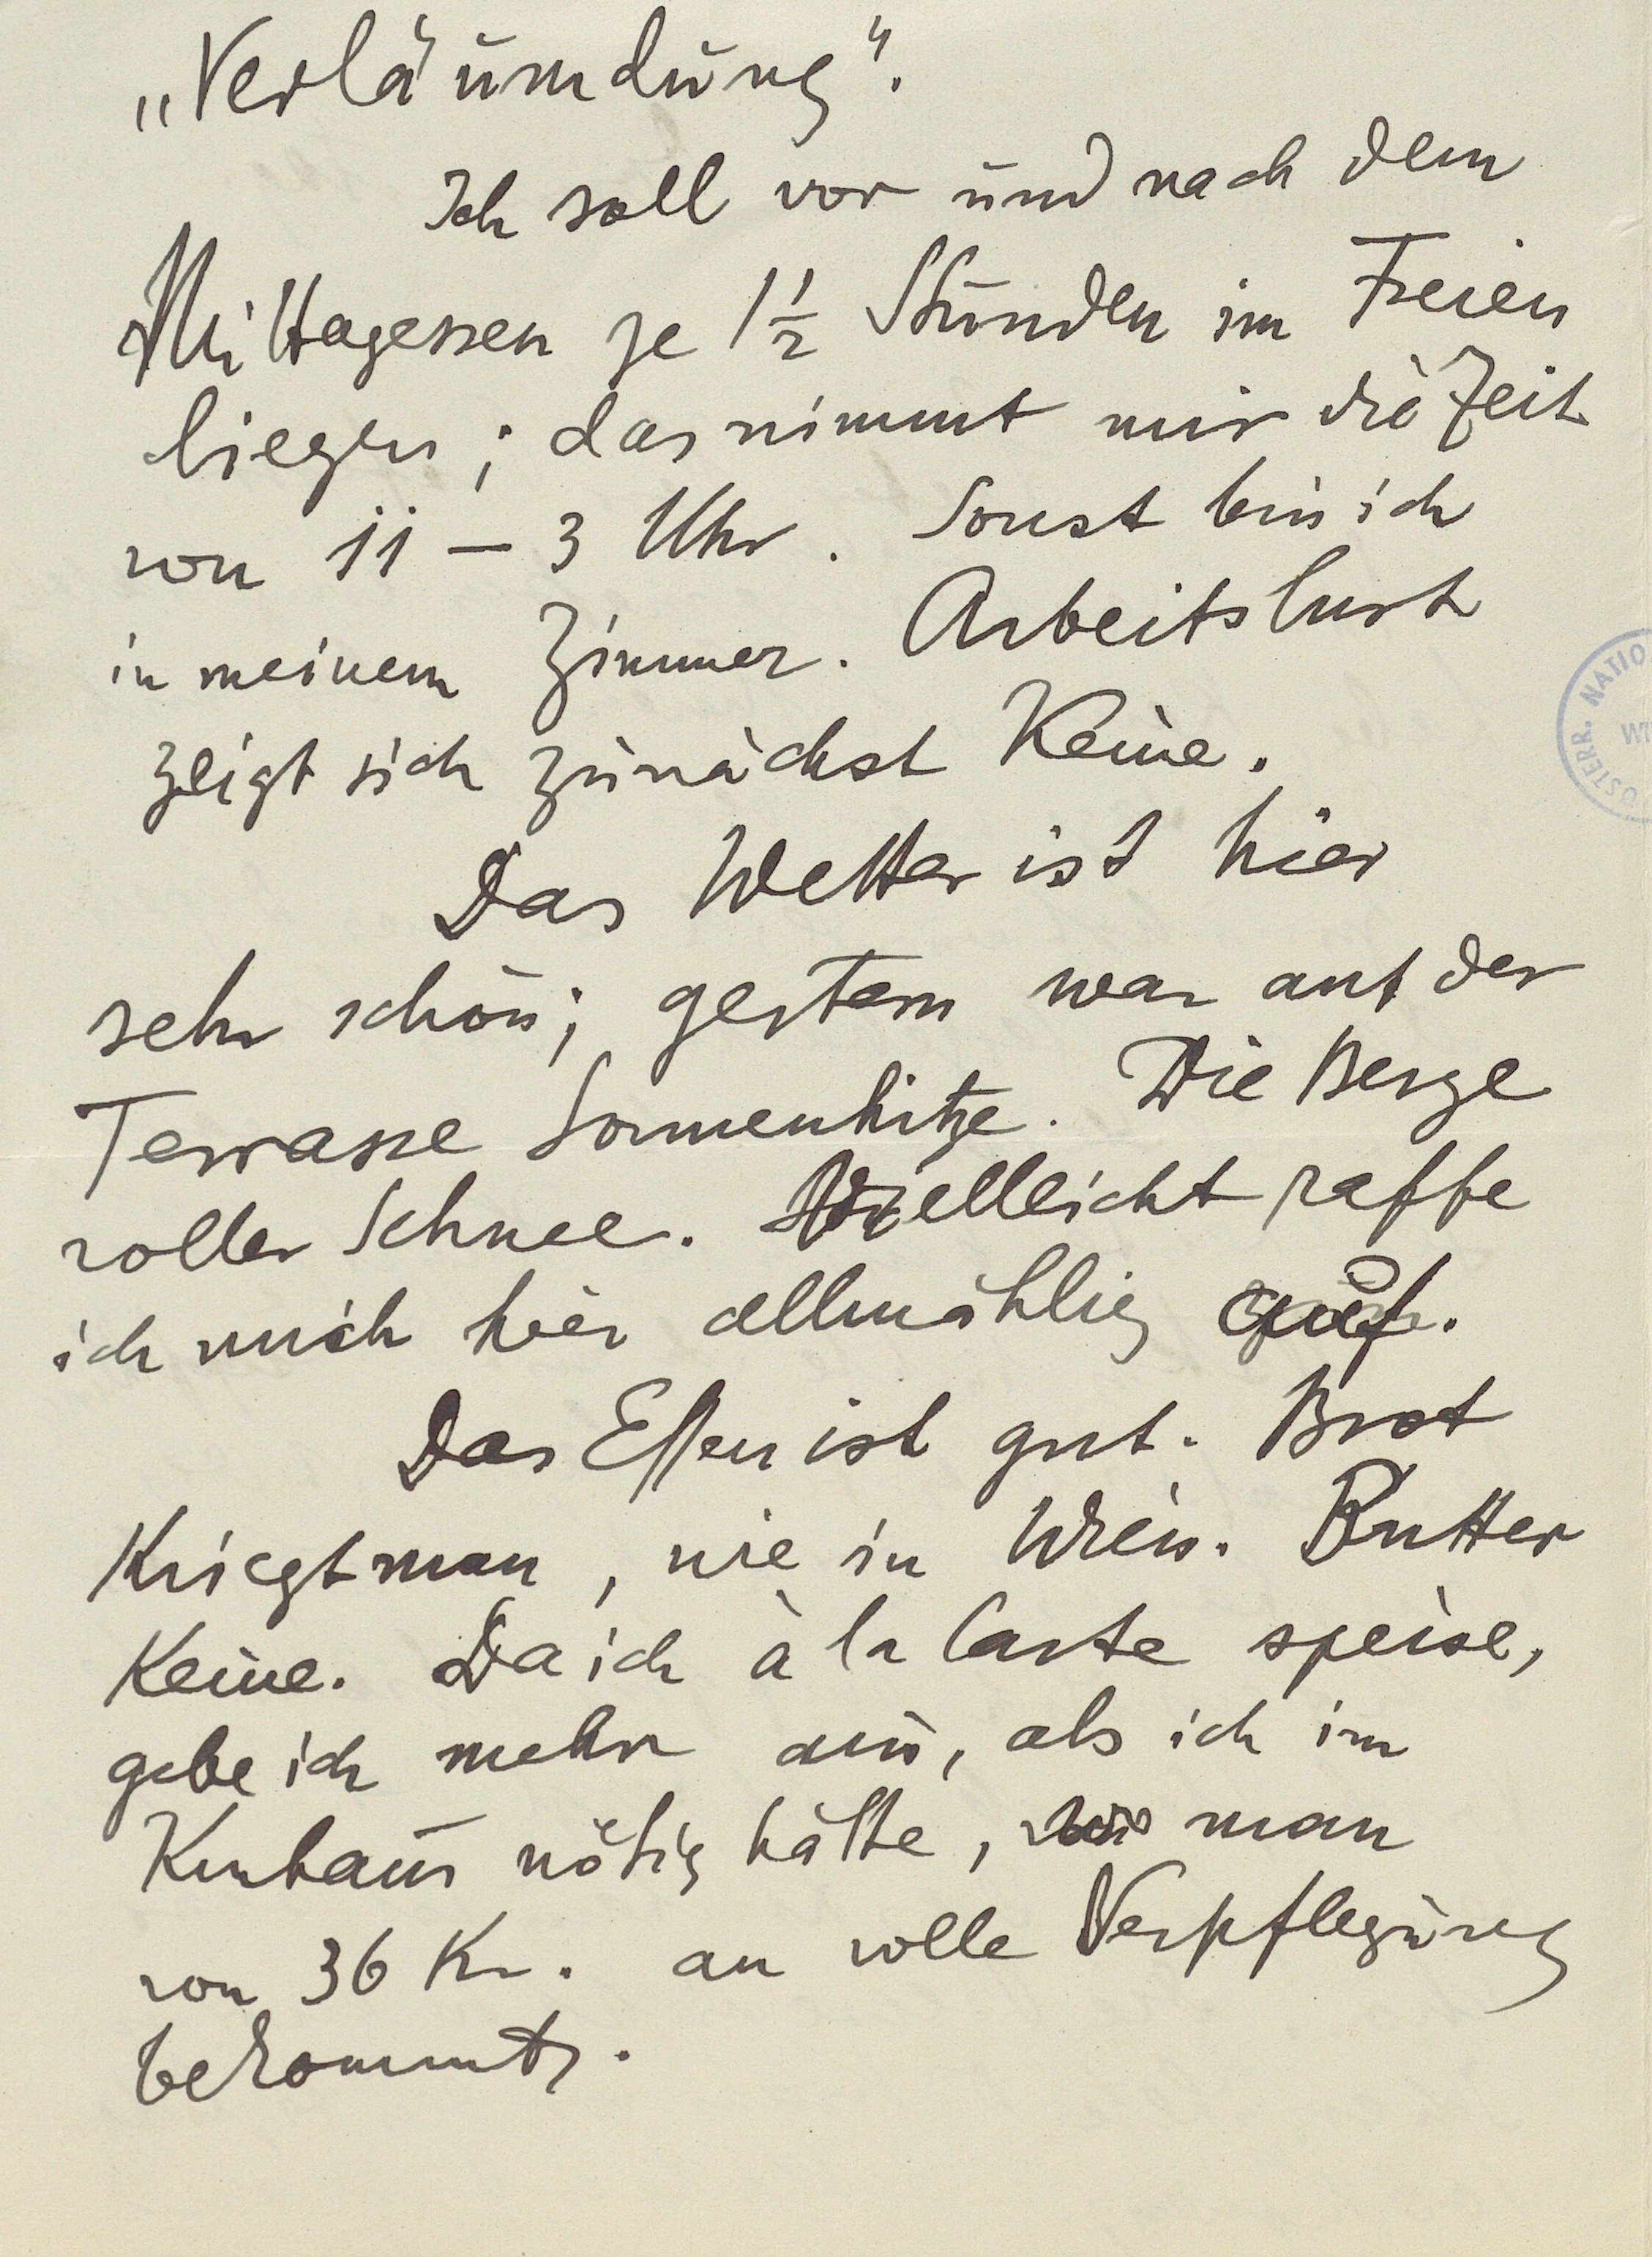 „Verläumdung“.
Ich soll vor und nach dem
Mittagessen je 1½ Stunden im Freien
liegen; das nimmt mir die Zeit
von 11 – 3 Uhr. Sonst bin ich
in meinem Zimmer. Arbeitslust
zeigt sich zunächst Keine.
Das Wetter ist hier
sehr schön; gestern war auf der
Terrasse Sonnenhitze. Die Berge
voller Schnee. Vielleicht raffe
ich mich hier allmählig auf.
Das Essen ist gut. Brot
Kriegt man, wie in Wien. Butter
Keine. Da ich à la Carte speise,
gebe ich mehr aus, als ich im
Kurhaus nötig hätte, wo man
von 36 Kr. an volle Verpflegung
bekommt.
ÖSTERR. NATIO
WI